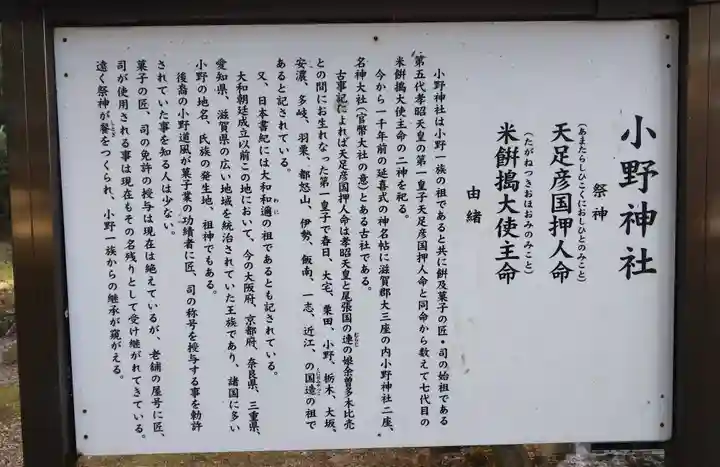 小野神社
祭神
(あまたらしひこくにおしひとのみこと)
天足彦国押人命
(たがねつきおほおみのみこと)
米餠搗大使主命
由緒
小野神社は小野一族の祖であると共に餠及菓子の匠・司の始祖である
第五代孝昭天皇の第一皇子天足彦国押人命と同命から数えて七代目の
米餠搗大使主命の二神を祀る。
今から一千年前の延喜式の神名帖に滋賀郡大三座の内小野神社二座、
名神大社(官幣大社の意)とある古社である。
古事記によれば天足彦国押人命は孝昭天皇と尾張国の連の娘余曽多本比売
との間にお生れなった第一皇子で春日、大宅、粟田、小野、栃木、大坂、
安濃、多岐、羽栗、都怒山、伊勢、飯南、一志、近江、の国造の祖で
あると記されている。
又、日本書紀には大和和邇の祖であるとも記されている。
大和朝廷成立以前この地において、今の大阪府、京都府、奈良県、三重県、
愛知県、滋賀県の広い地域を統治されていた王族であり、諸国に多い
小野の地名、氏族の発生地、祖神でもある。
後裔の小野道風が菓子業の功績者に匠、司の称号を授与する事を勅許
されていた事を知る人は少ない。
菓子の匠、司の免許の授与は現在は絶えているが、老舗の屋号に匠、
司が使用される事は現在もその名残りとして受け継がれてきている。
遠く祭神が餈をつくられ、小野一族からの継承が窺がえる。